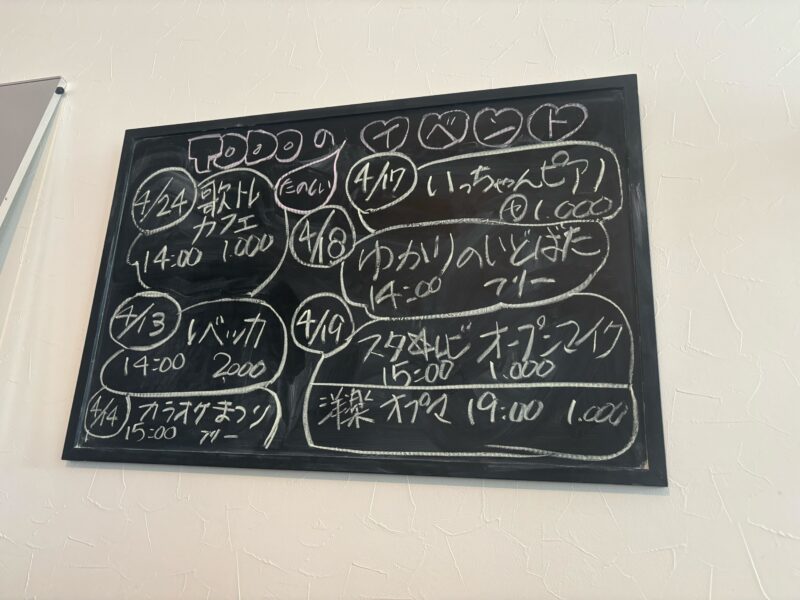 TODOの
たのしい
イベント
4/24 歌トレ
カフェ
14:00 1.000
4/13 レベッカ
14:00 2000
4/14 カラオケまつり
15:00 フリー
4/17 いっちゃんピアノ
1.000
4/18 ゆかりのいどばた
14:00 フリー
4/19 オープンマイク
15:00 1.000
洋楽 オプマ 19:00 1.000